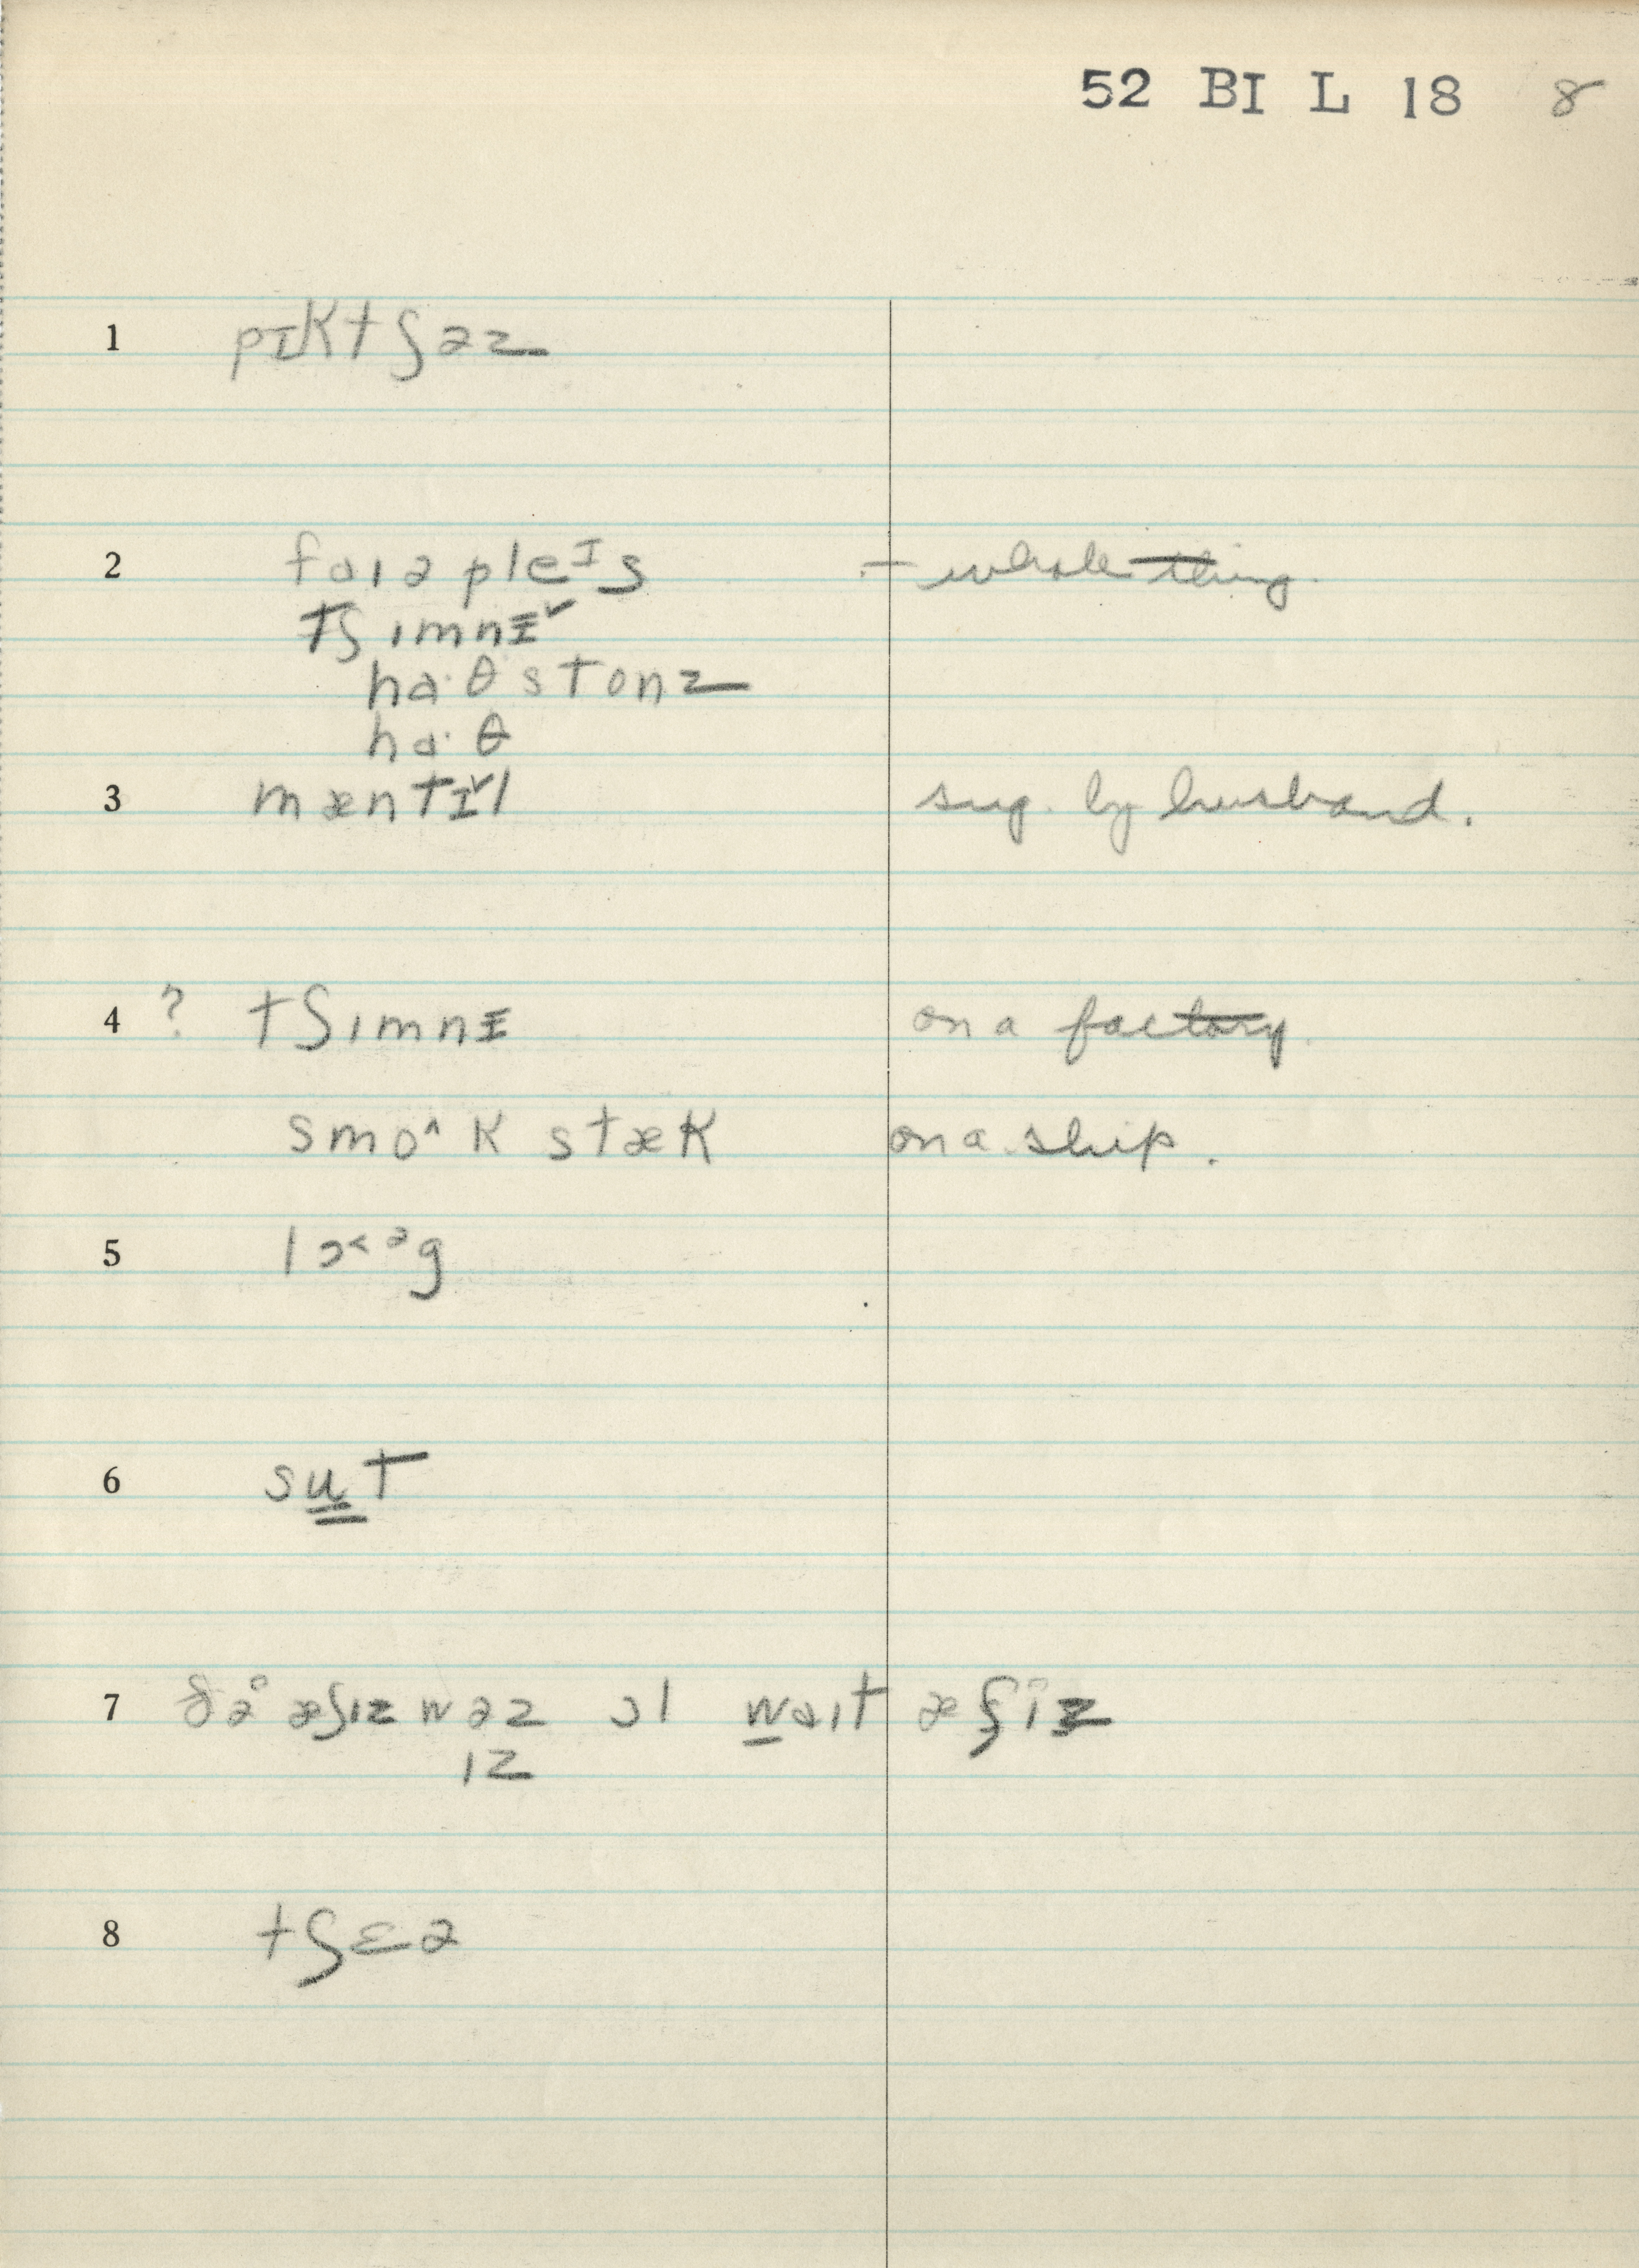 52 BI L 18 8
1 pɪktʃəz
2 faɪə pleᴵs – whole thing.
tʃɪmnɪ˅
ha·θstonz
ha·θ
3 mæntɪ˅l sug. by husband.
4 ? tʃɪmnɪ on a factory.
smo^k stæk on a ship.
5 lɔ˂ᵊg
6 su̳t
7 ðə æʃɪz wəz ɔl w̲aɪt æʃiz
ɪz
8 tʃɛə